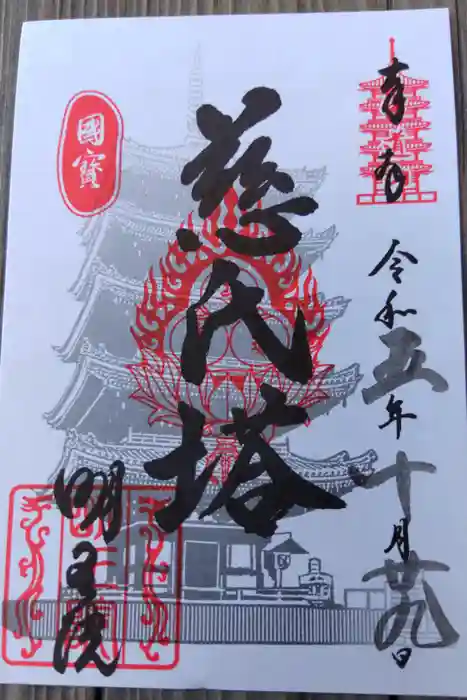 奉拝
令和五年十月廿九日
慈代塔
國寳
明王院